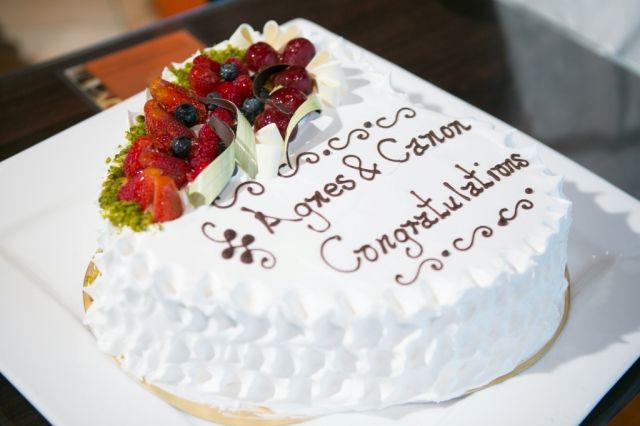 Agnes & Canon
Congratulations